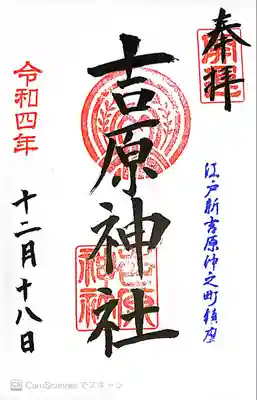 奉拝
江戸新吉原仲之町鎮座
吉原神社
令和四年
十二月十八日
CamScannerでスキャン